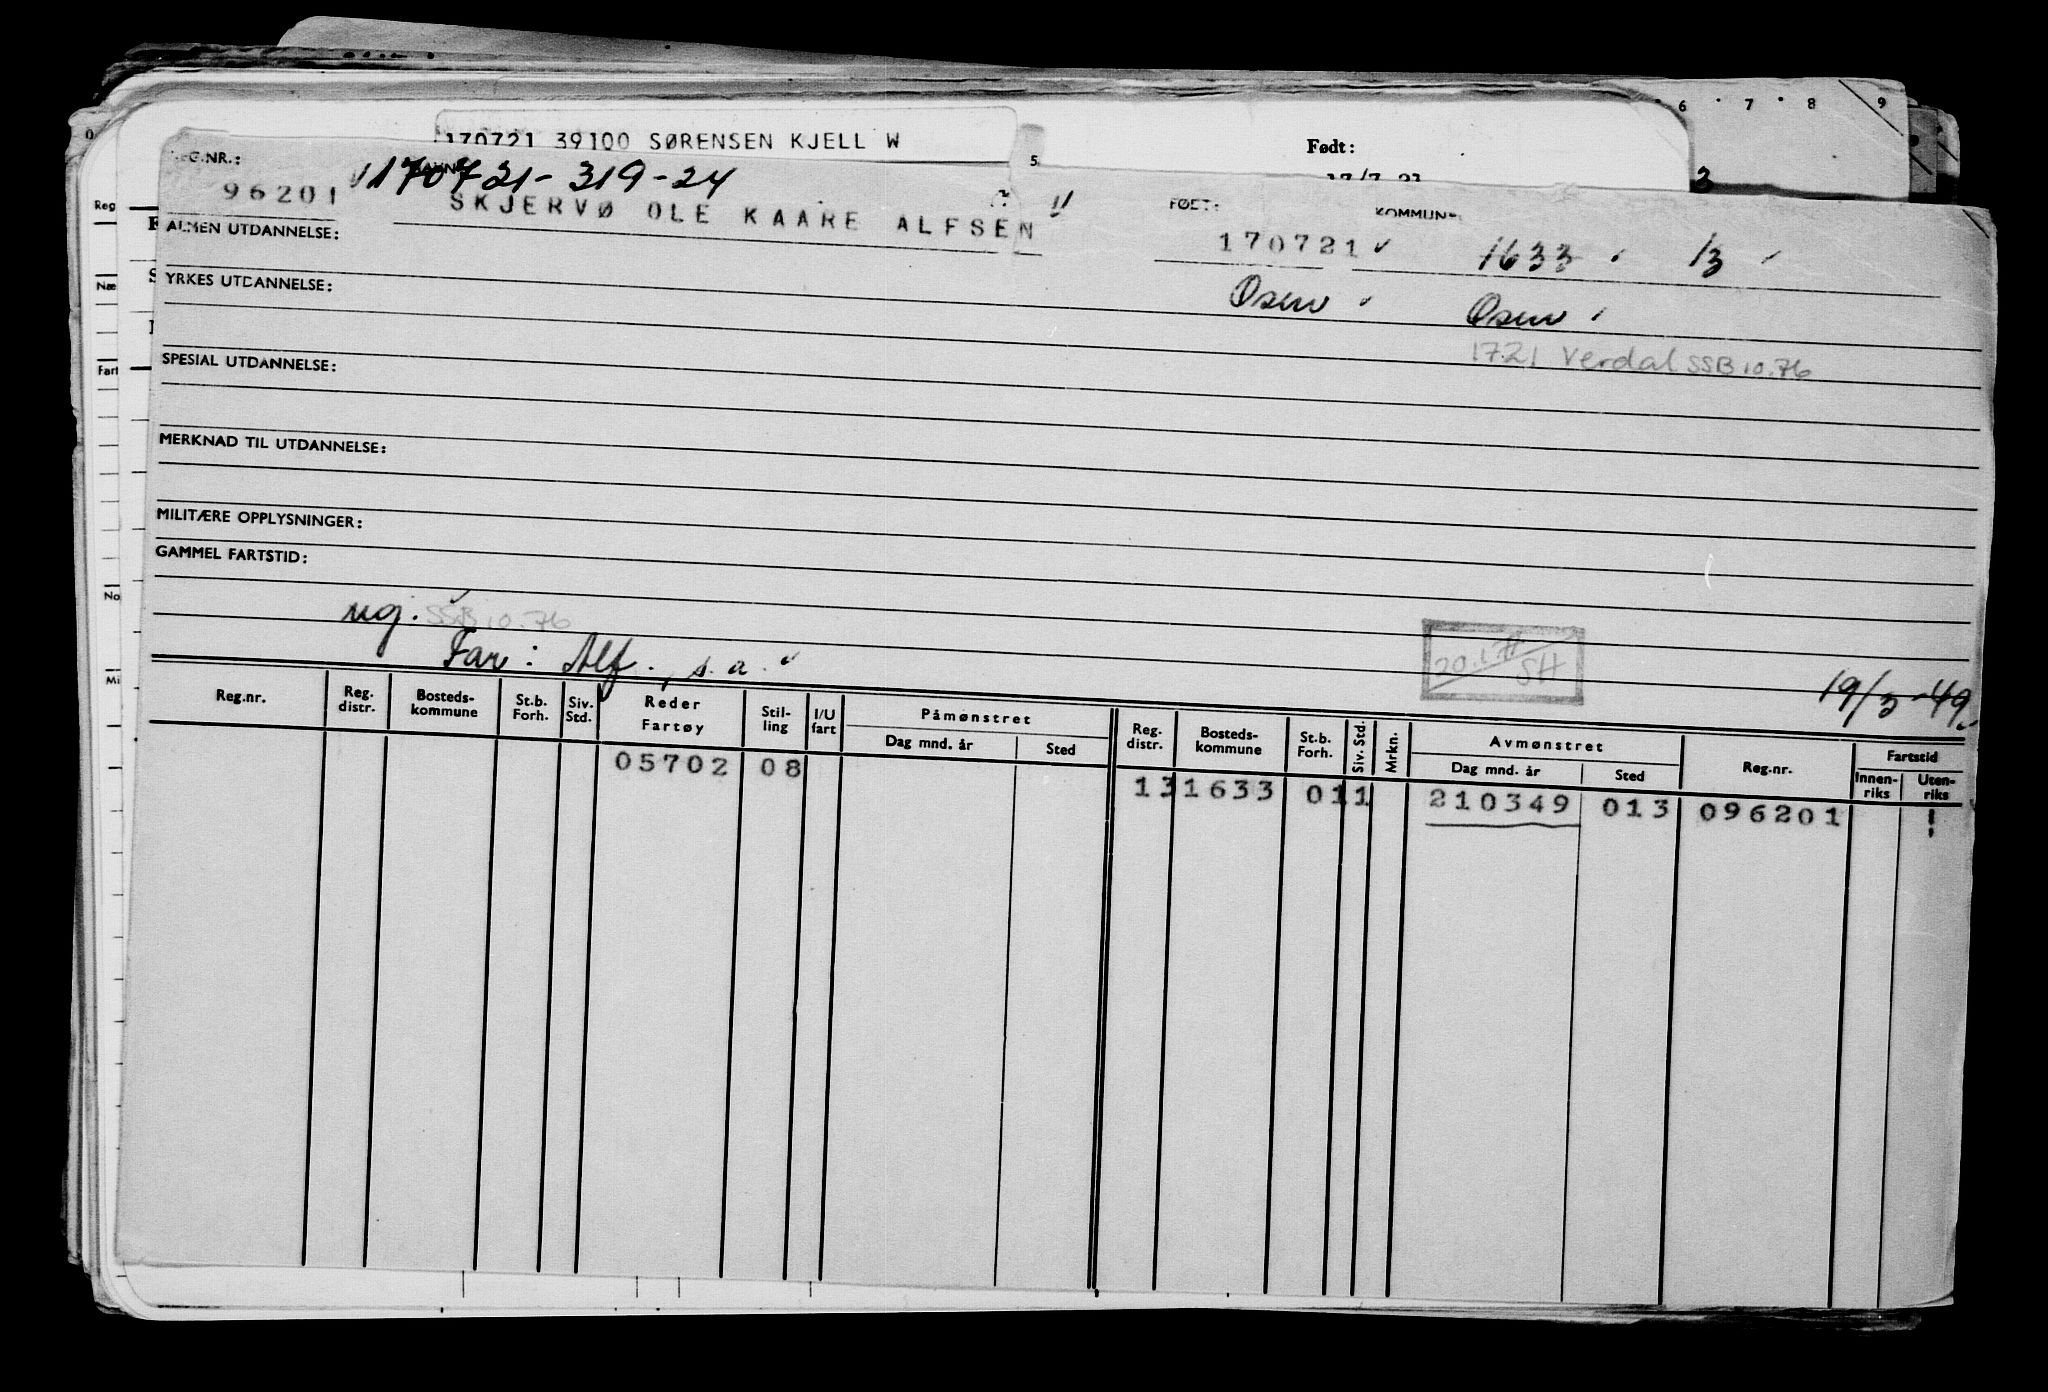 6 7 8 9
170721 39100 SØRENSEN KJELL W
Født:
5
3
REG.NR.:
170721-319-24
96201
SKJERVØ OLE KAARE ALFSEN
FØDT:
KOMMUNE
170721
1633 13
ALMEN UTDANNELSE:
Osen Osen
YRKES UTDANNELSE:
1721 Verdal SSB 10.76
SPESIAL UTDANNELSE:
MERKNAD TIL UTDANNELSE:
MILITÆRE OPPLYSNINGER:
GAMMEL FARTSTID:
ug. SSB 10.76
Far: Alf., s.a.
SH
19/3-49.
Reg.nr. Reg. distr. Bosteds-kommune St.b. Forh. Siv. Std. Reder Fartøy Stil-ling I/U fart Påmønstret Dag mnd. år Sted Reg. distr. Bosteds-kommune St.b. Forh. Siv. Std. Mrkn. Avmønstret Dag mnd. år Sted Reg.nr. Fartstid Innen-riks Uten-riks
05702 08 13 1633 01 1 210349 013 096201